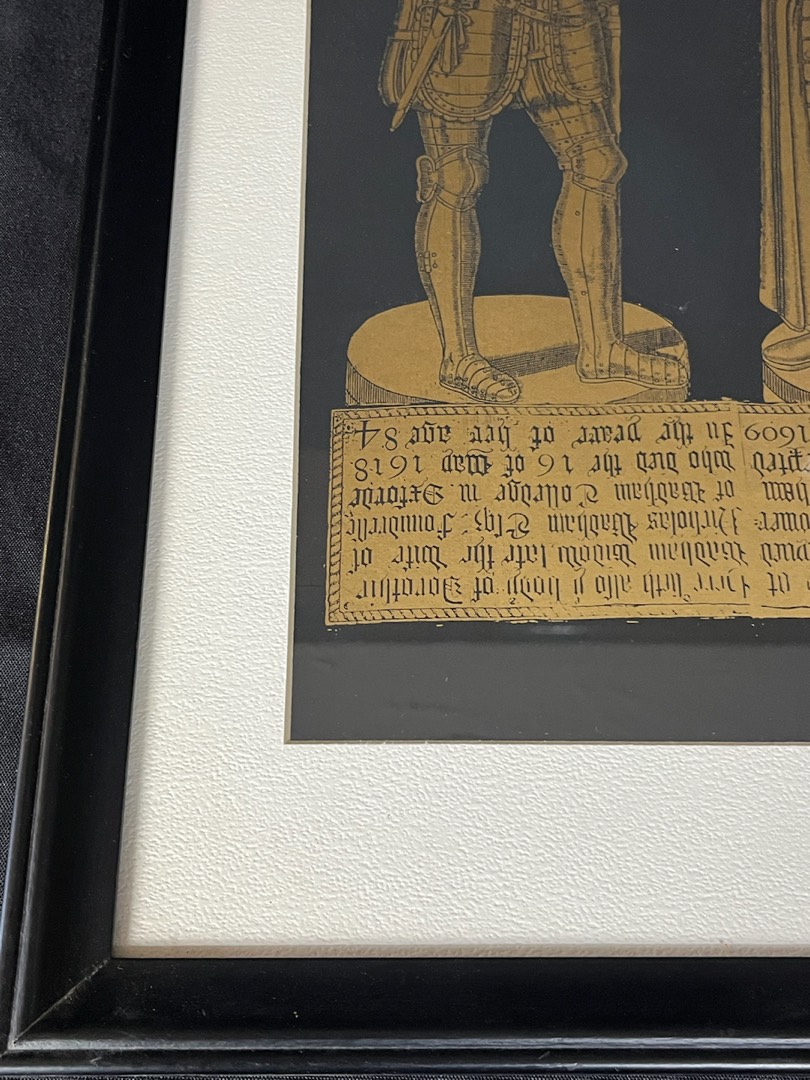 of Here lieth also y body of Dorothie
Wadham Widow late the Wife of
Nicholas Wadham Esq: Foundresse
of Wadham Colledge in Oxforde
who died the 16 of May 1618
1609 In the yeare of her age 84